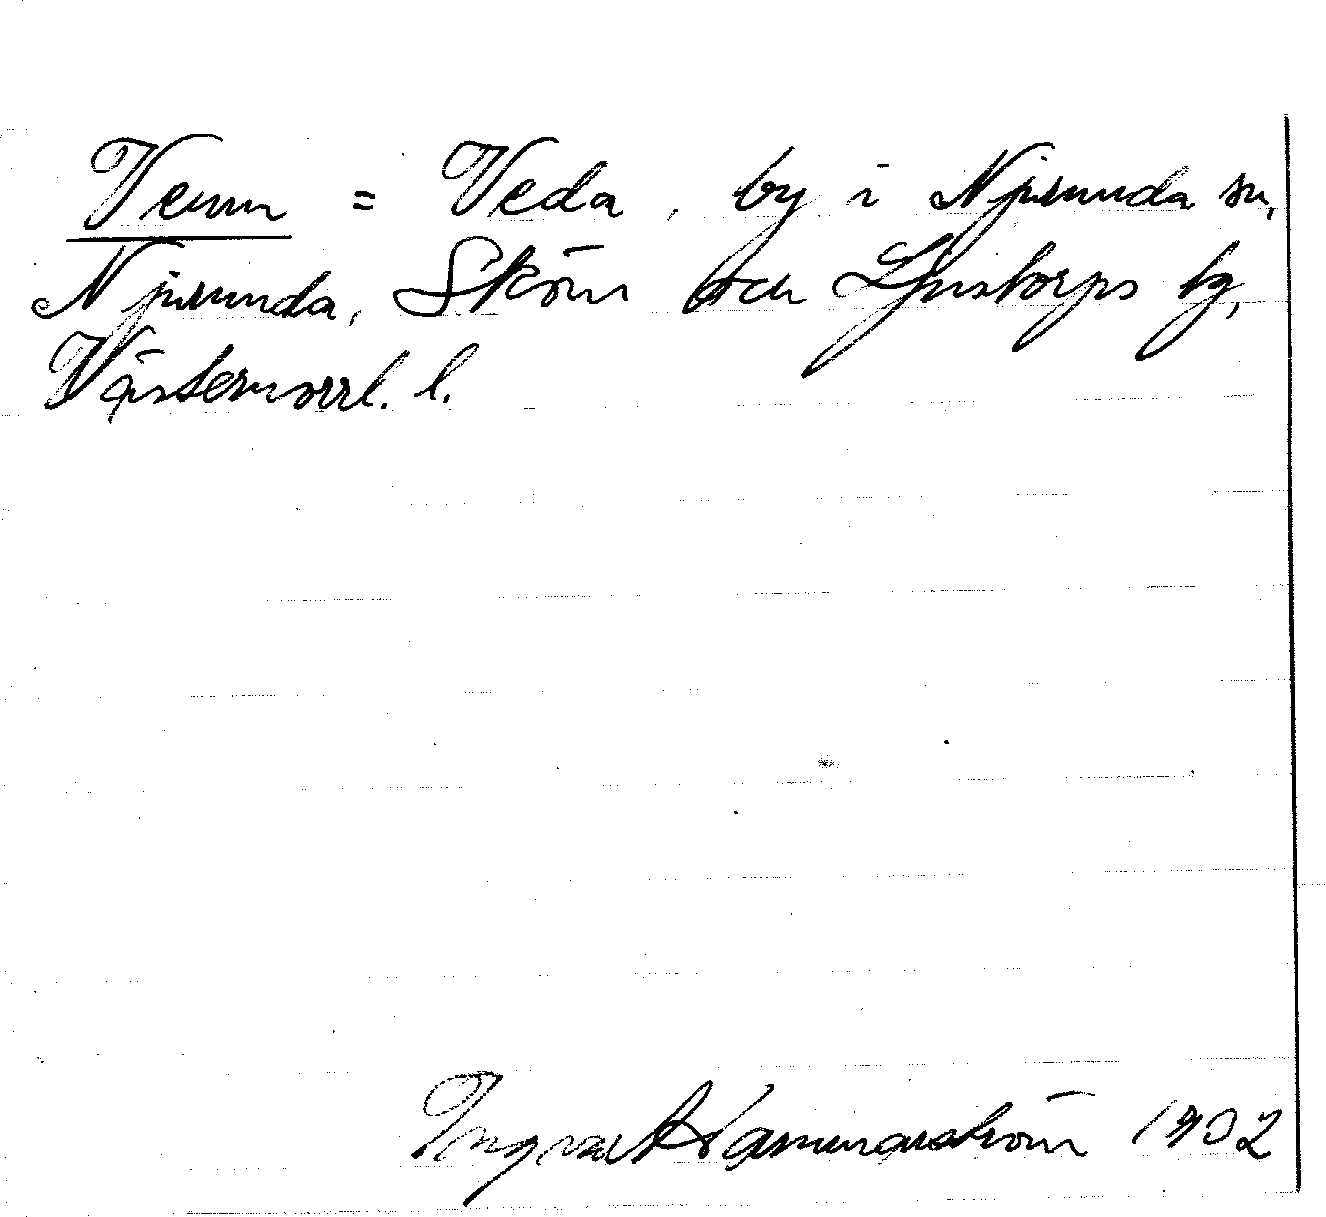 Venn = Veda, by i Njurunda sn,
Njurunda, Sköns och Ljustorps tg,
Västernorrl. l.
Hammarström 1902